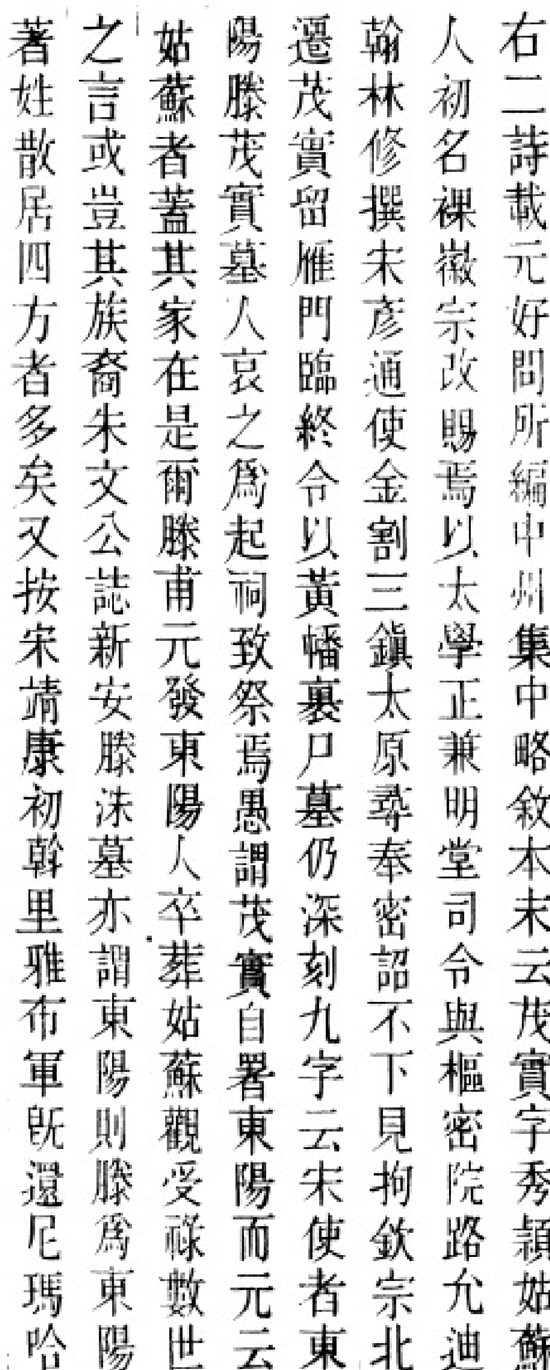 右二詩載元好問所編中州集中略敘本末云茂實字秀頴姑蘇
人初名祼徽宗改賜焉以太學正兼明堂司令與樞密院路允迪
翰林修撰宋彥通使金割三鎮太原尋奉密詔不下見拘欽宗北
遷茂實留雁門臨終令以黃幡裹尸墓仍深刻九字云宋使者東
陽滕茂實墓人哀之爲起祠致祭焉愚謂茂實自署東陽而元云
姑蘇者蓋其家在是爾滕甫元發東陽人卒葬姑蘇觀受祿數世
之言或豈其族裔朱文公誌新安滕洙墓亦謂東陽則滕爲東陽
著姓散居四方者多矣又按宋靖康初幹里雅布軍旣還尼瑪哈